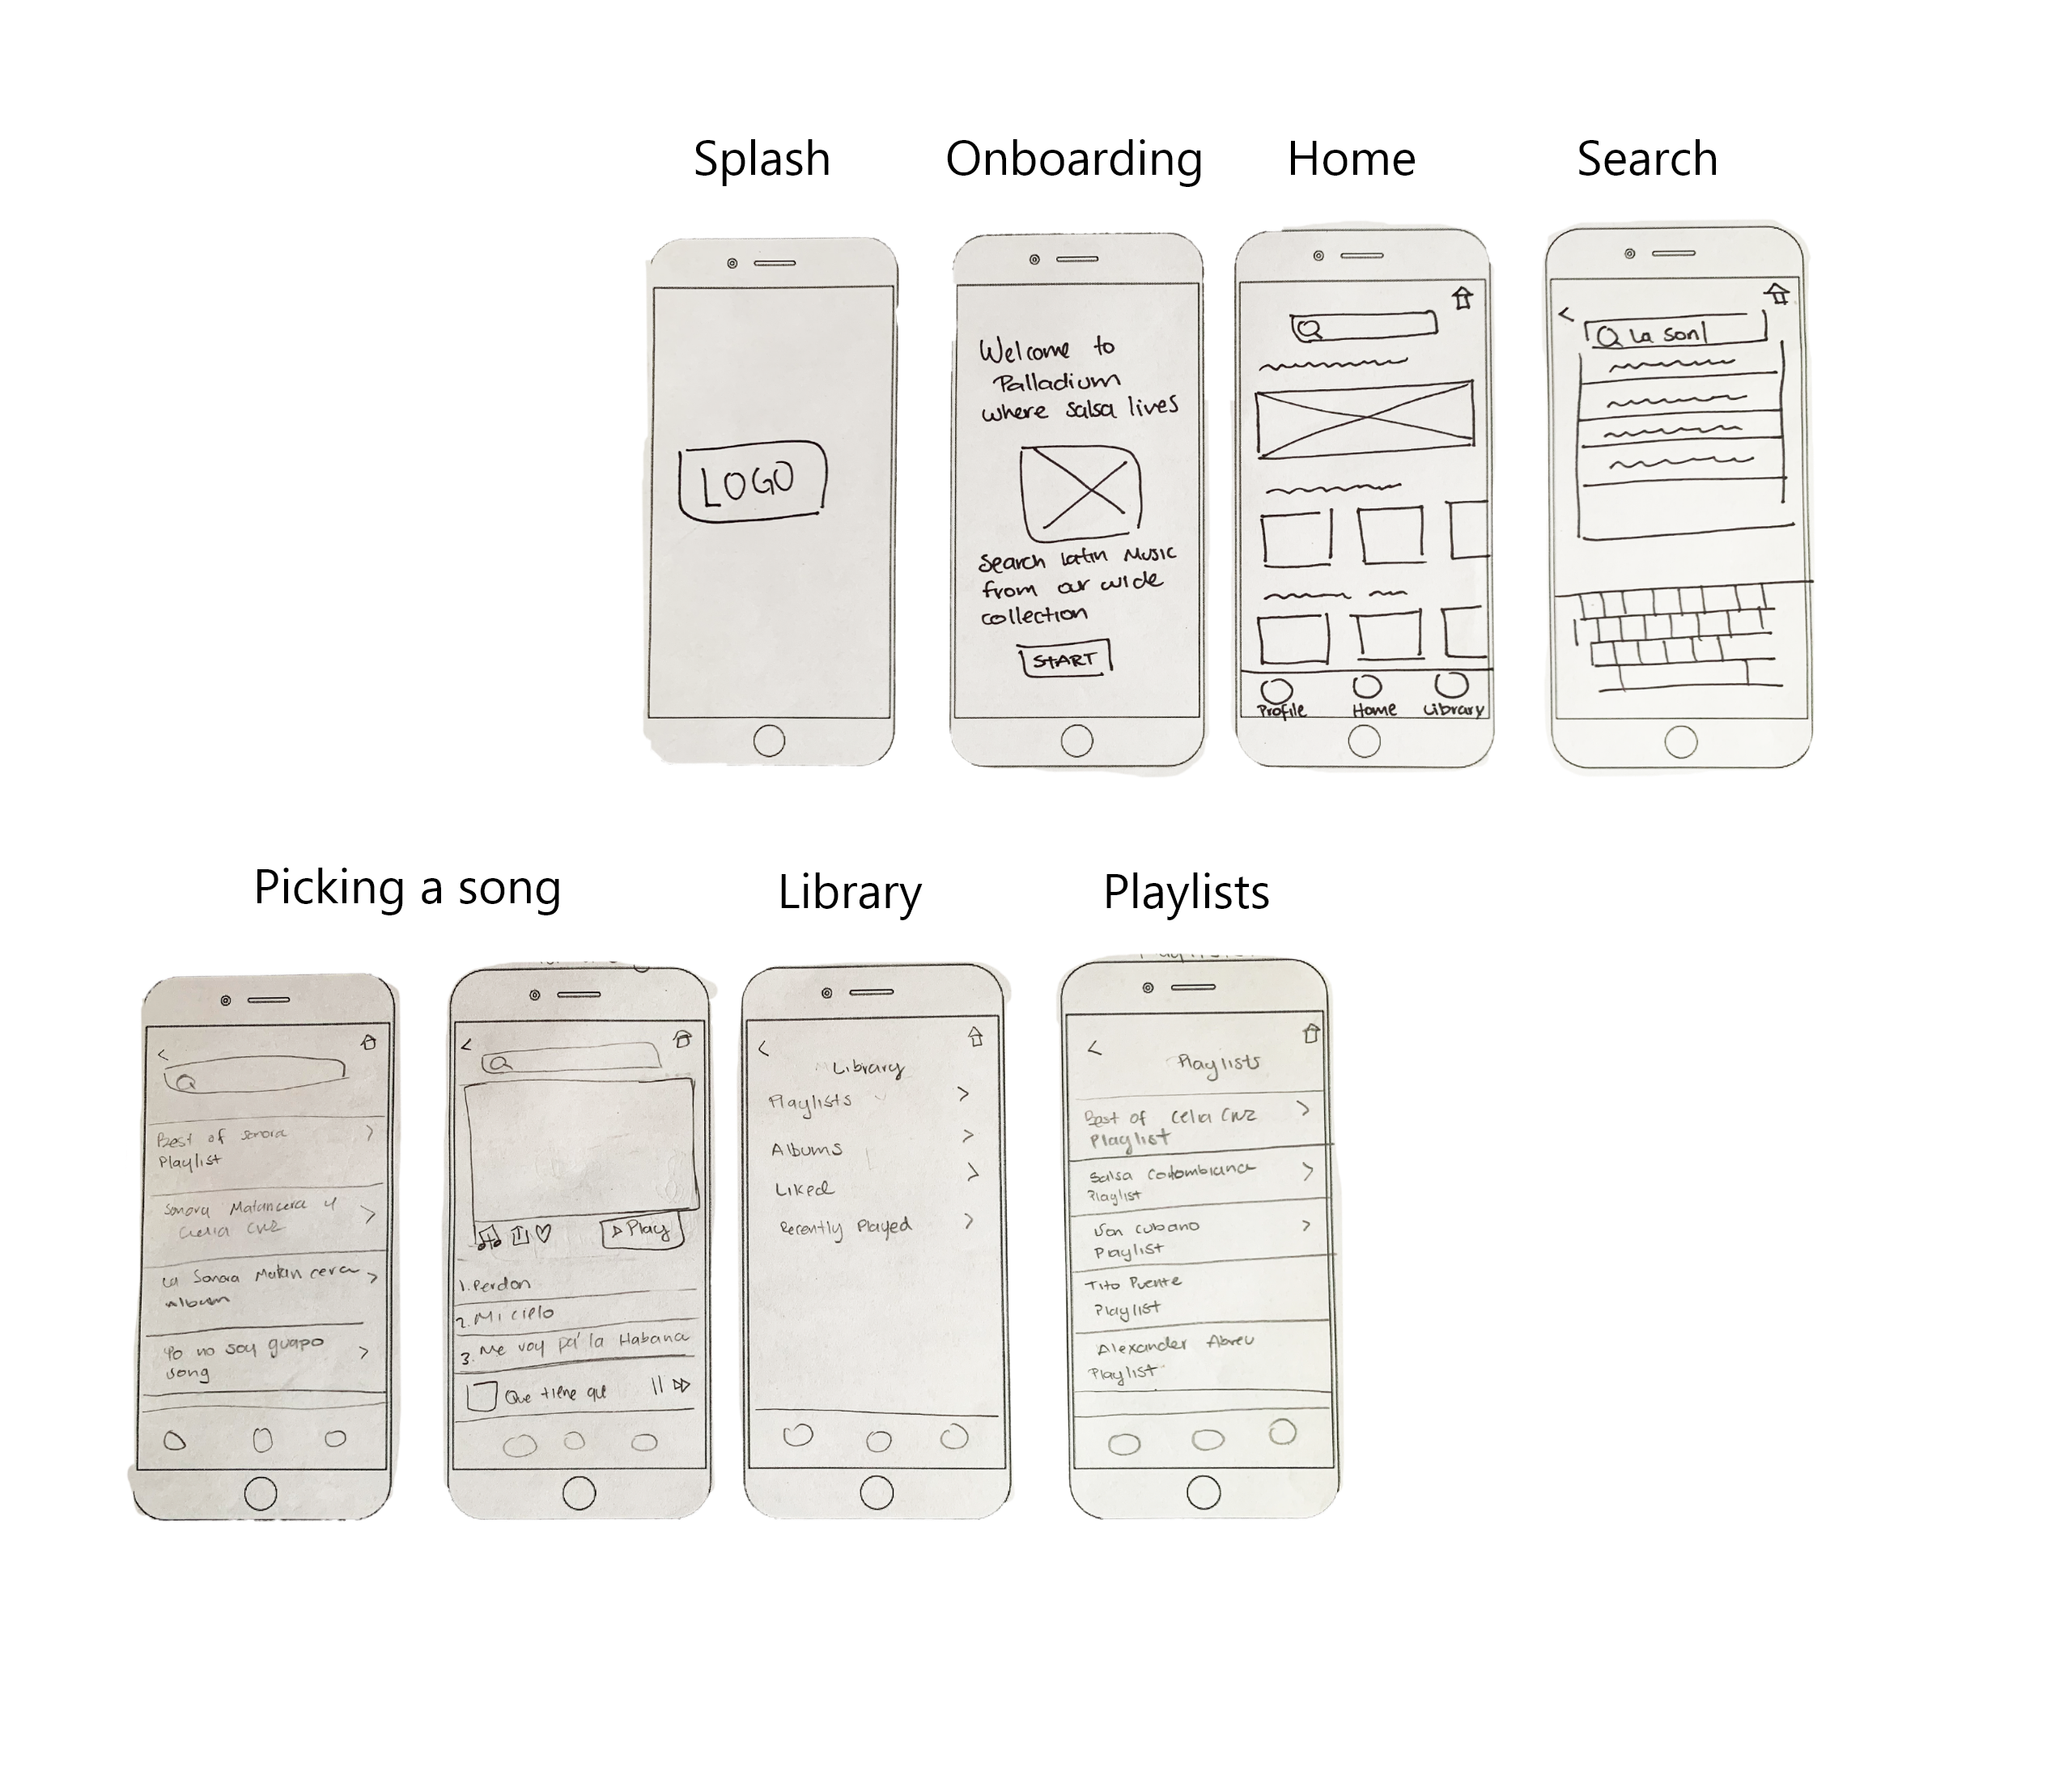 Splash
Onboarding
Home
Search
LOGO
Welcome to
Palladium
where salsa lives
Search Latin Music
from our wide
collection
START
Profile
Home
Library
La Son
Picking a song
Library
Playlists
Best of Sonora
Playlist
Sonora Matancera y
Celia Cruz
La Sonora Matancera
Album
Yo no soy guapo
song
Play
1. Perdon
2. Mi cielo
3. Me voy pa' la Habana
Que tiene que
Library
Playlists
Albums
Liked
Recently Played
Playlists
Best of Celia Cruz
Playlist
Salsa Colombiana
Playlist
Son cubano
Playlist
Tito Puente
Playlist
Alexander Abreu
Playlist